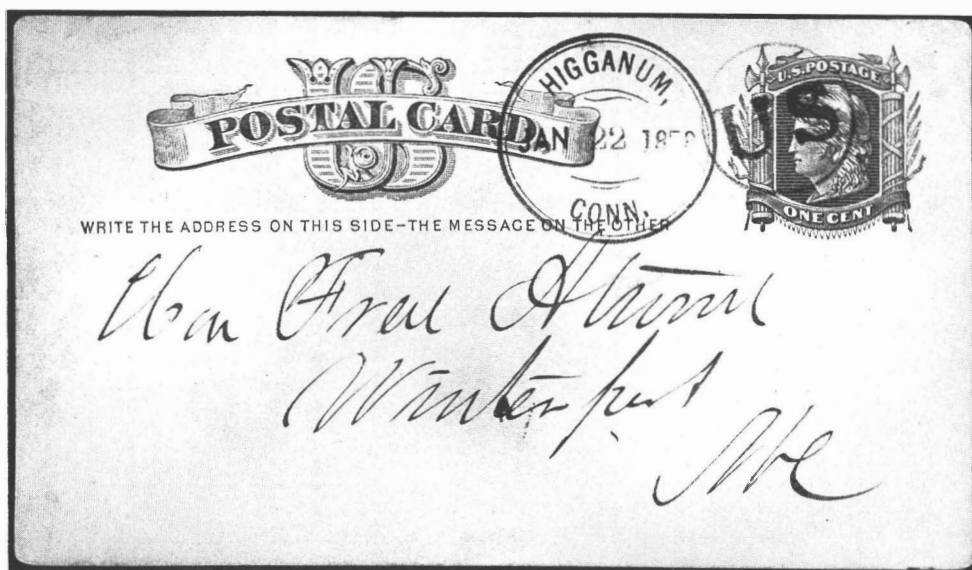 US
POSTAL CARD
HIGGANUM,
JAN 22 187
CONN.
U.S. POSTAGE
US
ONE CENT
WRITE THE ADDRESS ON THIS SIDE–THE MESSAGE ON THE OTHER
Hon Fred Atwood
Winterport
Me